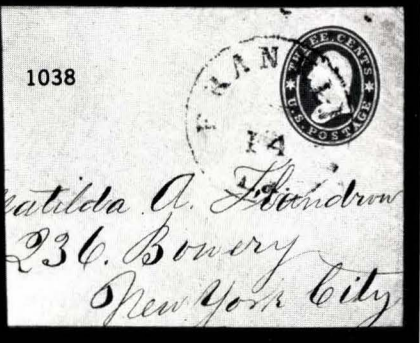 1038
THREE CENTS
U.S. POSTAGE
FRAN
14
atilda A. Flandrow
236. Bowery
New York City